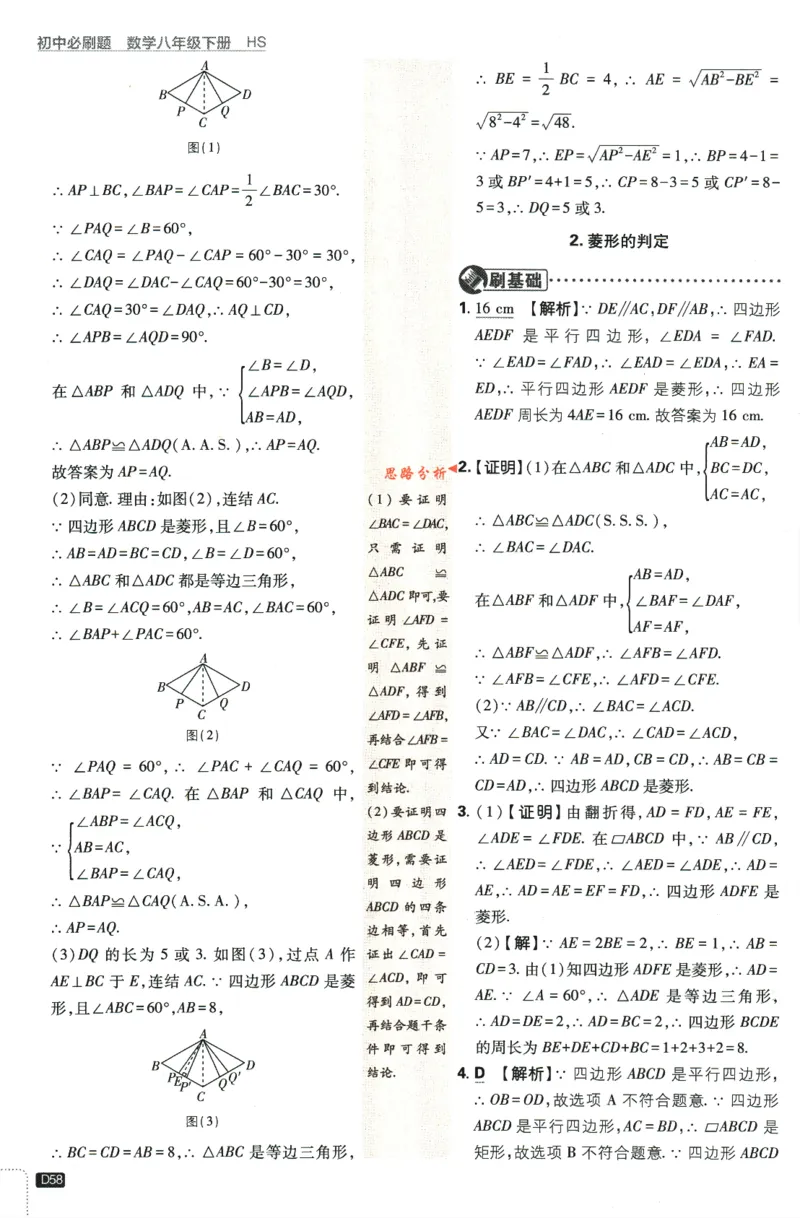 初中必刷题 数学八年级下册 HS
A
B
D
P
Q
C
图(1)
∴ AP⊥BC,∠BAP=∠CAP=1/2∠BAC=30°.
∵ ∠PAQ=∠B=60°,
∴ ∠CAQ = ∠PAQ-∠CAP = 60°-30° = 30°,
∴ ∠DAQ=∠DAC-∠CAQ=60°-30°=30°,
∴ ∠CAQ=30°=∠DAQ,∴ AQ⊥CD,
∴ ∠APB=∠AQD=90°.
∠B=∠D,
在△ABP 和 △ADQ 中,∵ ∠APB=∠AQD,
AB=AD,
∴ △ABP≌△ADQ(A.A.S.),∴ AP=AQ.
故答案为 AP=AQ.
(2)同意.理由:如图(2),连结 AC.
∵ 四边形 ABCD 是菱形,且∠B=60°,
∴ AB=AD=BC=CD,∠B=∠D=60°,
∴ △ABC 和△ADC 都是等边三角形,
∴ ∠B=∠ACQ=60°,AB=AC,∠BAC=60°,
∴ ∠BAP+∠PAC=60°.
A
B
D
P
Q
C
图(2)
∵ ∠PAQ = 60°,∴ ∠PAC + ∠CAQ = 60°,
∴ ∠BAP= ∠CAQ. 在 △BAP 和 △CAQ 中,
∠ABP=∠ACQ,
∵ AB=AC,
∠BAP=∠CAQ,
∴ △BAP≌△CAQ(A.S.A.),
∴ AP=AQ.
(3)DQ 的长为 5 或 3. 如图(3),过点 A 作
AE⊥BC 于 E,连结 AC.∵ 四边形 ABCD 是菱
形,且∠ABC=60°,AB=8,
A
B
D
P
E
P'
Q
Q'
C
图(3)
∴ BC=CD=AB=8,∴ △ABC 是等边三角形,
D58
思路分析
(1) 要证明
∠BAC=∠DAC,
只需证明
△ABC ≌
△ADC 即可,要
证明 ∠AFD =
∠CFE, 先证
明 △ABF ≌
△ADF, 得到
∠AFD=∠AFB,
再结合∠AFB=
∠CFE 即可得
到结论.
(2)要证明四
边形 ABCD 是
菱形,需要证
明四边形
ABCD 的四条
边相等,首先
证出 ∠CAD =
∠ACD, 即可
得到 AD=CD,
再结合题干条
件即可得到
结论.
∴ BE = 1/2 BC = 4,∴ AE = √(AB²-BE²) =
√(8²-4²)=√48.
∵ AP=7,∴ EP=√(AP²-AE²)=1,∴ BP=4-1=
3 或 BP'=4+1=5,∴ CP=8-3=5 或 CP'=8-
5=3,∴ DQ=5 或 3.
2. 菱形的判定
刷基础
1. 16 cm 【解析】∵ DE∥AC,DF∥AB,∴ 四边形
AEDF 是平行四边形, ∠EDA = ∠FAD.
∵ ∠EAD=∠FAD,∴ ∠EAD=∠EDA,∴ EA=
ED,∴ 平行四边形 AEDF 是菱形,∴ 四边形
AEDF 周长为 4AE=16 cm. 故答案为 16 cm.
AB=AD,
2.【证明】(1)在△ABC 和△ADC 中, BC=DC,
AC=AC,
∴ △ABC≌△ADC(S.S.S.),
∴ ∠BAC=∠DAC.
AB=AD,
在△ABF 和△ADF 中, ∠BAF=∠DAF,
AF=AF,
∴ △ABF≌△ADF,∴ ∠AFB=∠AFD.
∵ ∠AFB=∠CFE,∴ ∠AFD=∠CFE.
(2)∵ AB∥CD,∴ ∠BAC=∠ACD.
又∵ ∠BAC=∠DAC,∴ ∠CAD=∠ACD,
∴ AD=CD. ∵ AB=AD,CB=CD,∴ AB=CB=
CD=AD,∴ 四边形 ABCD 是菱形.
3. (1)【证明】由翻折得,AD = FD,AE = FE,
∠ADE= ∠FDE. 在 ▱ABCD 中,∵ AB∥CD,
∴ ∠AED=∠FDE,∴ ∠AED=∠ADE,∴ AD=
AE,∴ AD=AE=EF=FD,∴ 四边形 ADFE 是
菱形.
(2)【解】∵ AE=2BE=2,∴ BE=1,∴ AB=
CD=3. 由(1)知四边形 ADFE 是菱形,∴ AD=
AE. ∵ ∠A = 60°,∴ △ADE 是等边三角形,
∴ AD=DE=2,∴ AD=BC=2,∴ 四边形 BCDE
的周长为 BE+DE+CD+BC=1+2+3+2=8.
4. D 【解析】∵ 四边形 ABCD 是平行四边形,
∴ OB=OD,故选项 A 不符合题意. ∵ 四边形
ABCD 是平行四边形,AC=BD,∴ ▱ABCD 是
矩形,故选项 B 不符合题意. ∵ 四边形 ABCD